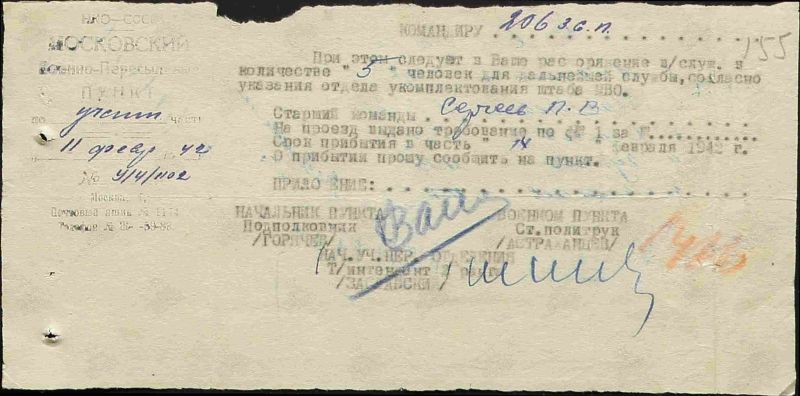 НКО-СССР
МОСКОВСКИЙ
Военно-Пересыльный
ПУНКТ
по части
11 февр 42
№ 4/4/1102
Москва,
Почтовый ящик №
Телефон №
КОМАНДИРУ 206 з.с.п.
155
При этом следует в Ваше распоряжение в/служ. в
количестве " 5 " человек для дальнейшей службы, согласно
указания отдела укомплектования штаба МВО.
Старший команды Сергеев П. В
На проезд выдано требование по ф 1 за №
Срок прибытия в часть " 14 " февраля 1942 г.
О прибытии прошу сообщить на пункт.
ПРИЛОЖЕНИЕ:
НАЧАЛЬНИК ПУНКТА
Подполковник
/ГОРЯЧЕВ/
ВОЕНКОМ ПУНКТА
Ст.политрук
/АСТРАХАНЦЕВ/
НАЧ.УЧ.ПЕР. ОТДЕЛЕНИЯ
Т/интендант 2 ранга